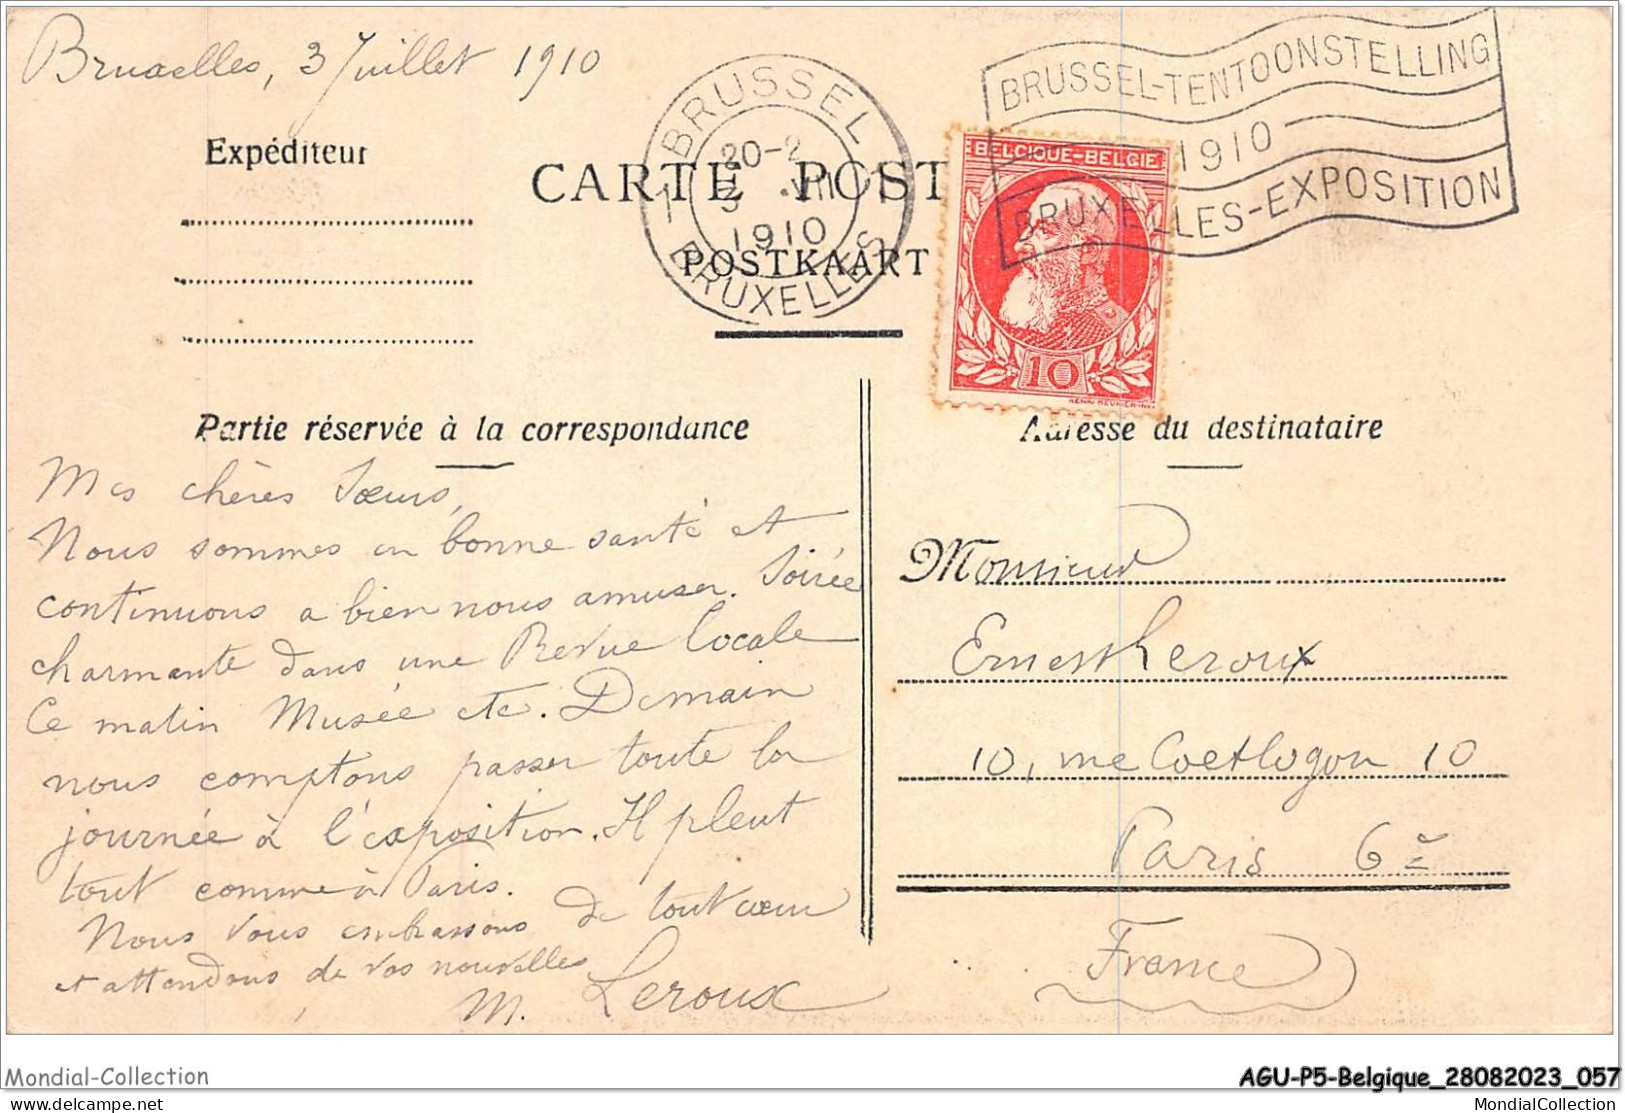 Bruxelles, 3 Juillet 1910
BRUSSEL-TENTOONSTELLING
1910
BRUXELLES-EXPOSITION
1 BRUSSEL 1
20-2
3 VII
1910
BRUXELLES
Expéditeur
CARTE POST
POSTKAART
BELGIQUE-BELGIE
10
Partie réservée à la correspondance
Adresse du destinataire
Mes chères Sœurs,
Nous sommes en bonne santé et
continuons a bien nous amuser. Soirée
charmante dans une Revue locale
Ce matin Musée etc. Demain
nous comptons passer toute la
journée à l'exposition. Il pleut
tout comme à Paris.
Nous vous embrassons de tout cœur
et attendons de vos nouvelles
M. Leroux
Monsieur
Ernest Leroux
10, rue Coetlogon 10
Paris 6e
France
Mondial-Collection
delcampe.net
AGU-P5-Belgique_28082023_057
MondialCollection